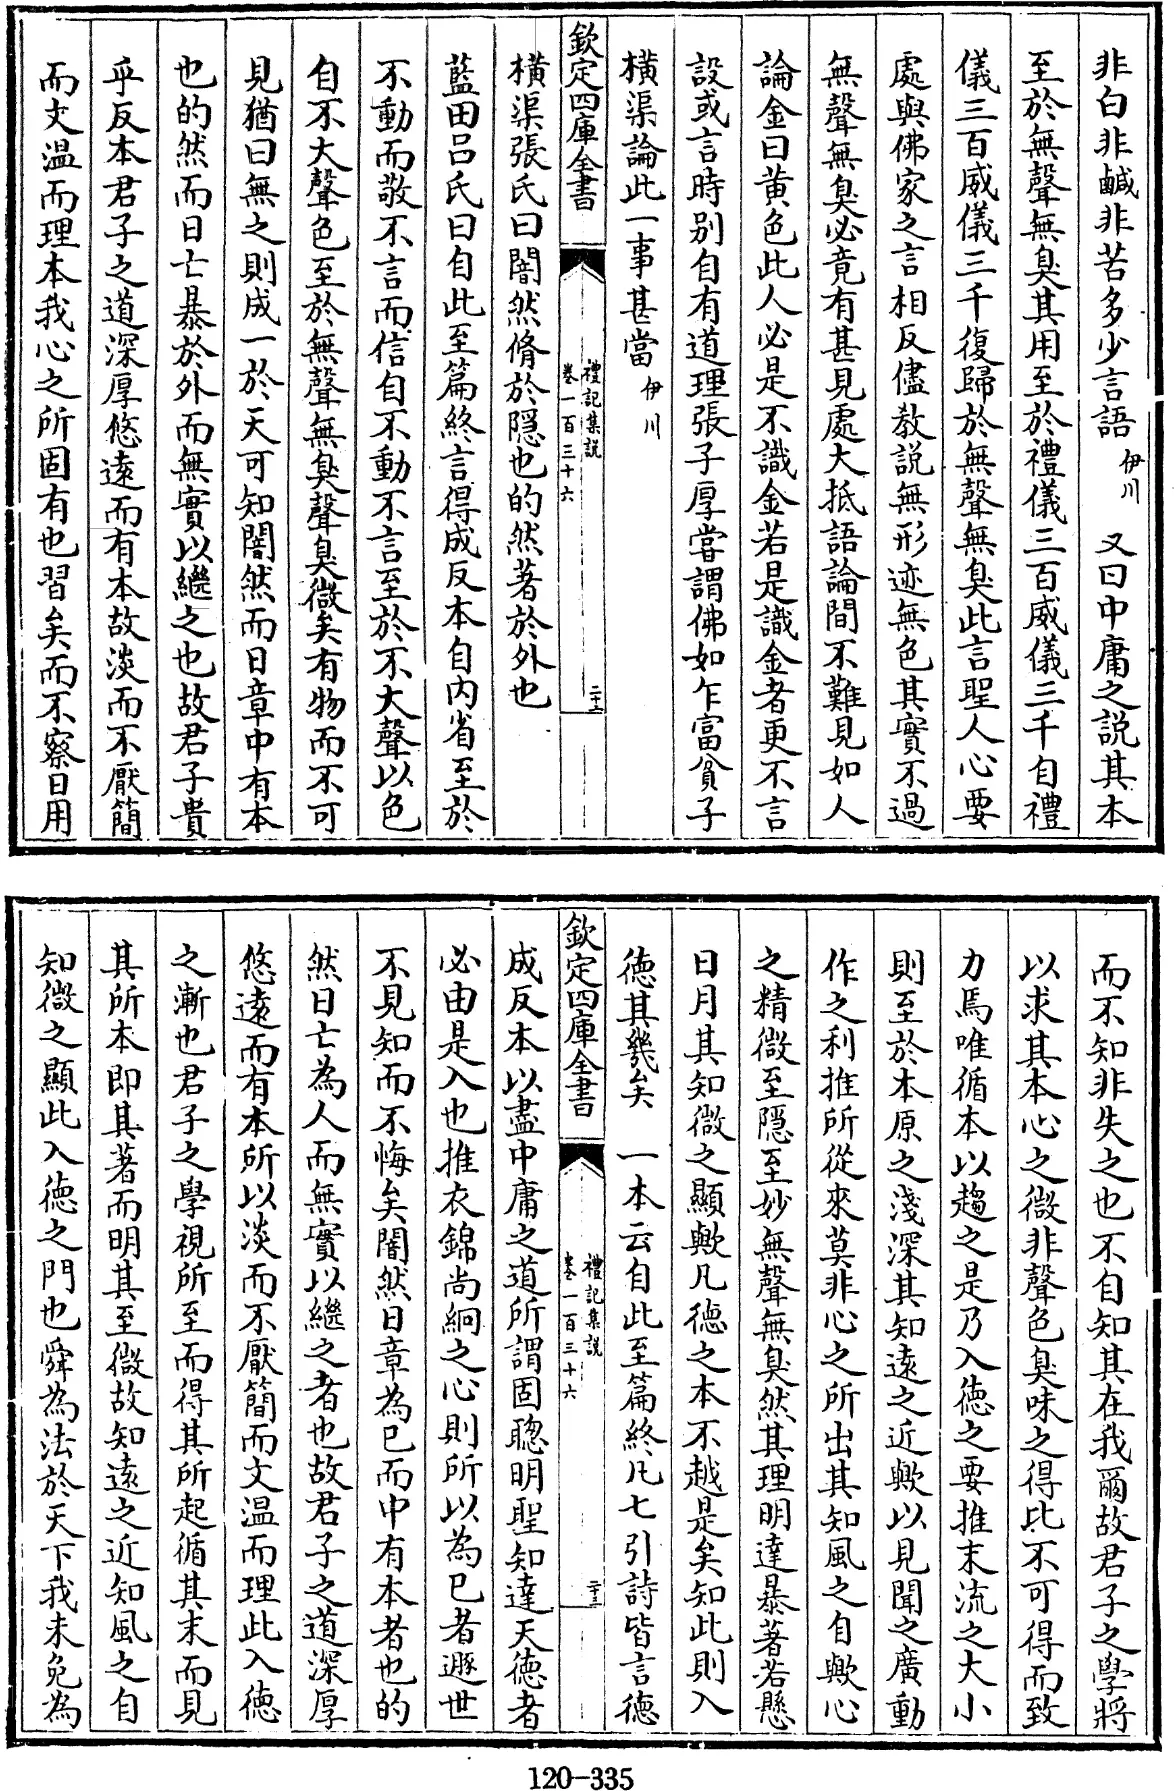 非白非鹹非苦多少言語伊川　又曰中庸之說其本
至於無聲無臭其用至於禮儀三百威儀三千自禮
儀三百威儀三千復歸於無聲無臭此言聖人心要
處與佛家之言相反儘教說無形迹無色其實不過
無聲無臭必竟有甚見處大抵語論間不難見如人
論金曰黃色此人必是不識金若是識金者更不言
設或言時别自有道理張子厚嘗謂佛如乍富貧子
橫渠論此一事甚當伊川
欽定四庫全書
禮記集說
卷一百三十六
二十二
橫渠張氏曰闇然脩於隱也的然著於外也
藍田呂氏曰自此至篇終言得成反本自内省至於
不動而敬不言而信自不動不言至於不大聲以色
自不大聲色至於無聲無臭聲臭微矣有物而不可
見猶曰無之則成一於天可知闇然而日章中有本
也的然而日亡暴於外而無實以繼之也故君子貴
乎反本君子之道深厚悠遠而有本故淡而不厭簡
而文温而理本我心之所固有也習矣而不察日用
而不知非失之也不自知其在我爾故君子之學將
以求其本心之微非聲色臭味之得比不可得而致
力焉唯循本以趨之是乃入德之要推末流之大小
則至於本原之淺深其知遠之近歟以見聞之廣動
作之利推所從來莫非心之所出其知風之自歟心
之精微至隱至妙無聲無臭然其理明達暴著若懸
日月其知微之顯歟凡德之本不越是矣知此則入
德其幾矣　一本云自此至篇終凡七引詩皆言德
欽定四庫全書
禮記集說
卷一百三十六
二十三
成反本以盡中庸之道所謂固聰明聖知達天德者
必由是入也推衣錦尚絅之心則所以為已者遯世
不見知而不悔矣闇然日章為已而中有本者也的
然日亡為人而無實以繼之者也故君子之道深厚
悠遠而有本所以淡而不厭簡而文温而理此入德
之漸也君子之學視所至而得其所起循其末而見
其所本即其著而明其至微故知遠之近知風之自
知微之顯此入德之門也舜為法於天下我未免為
120-335